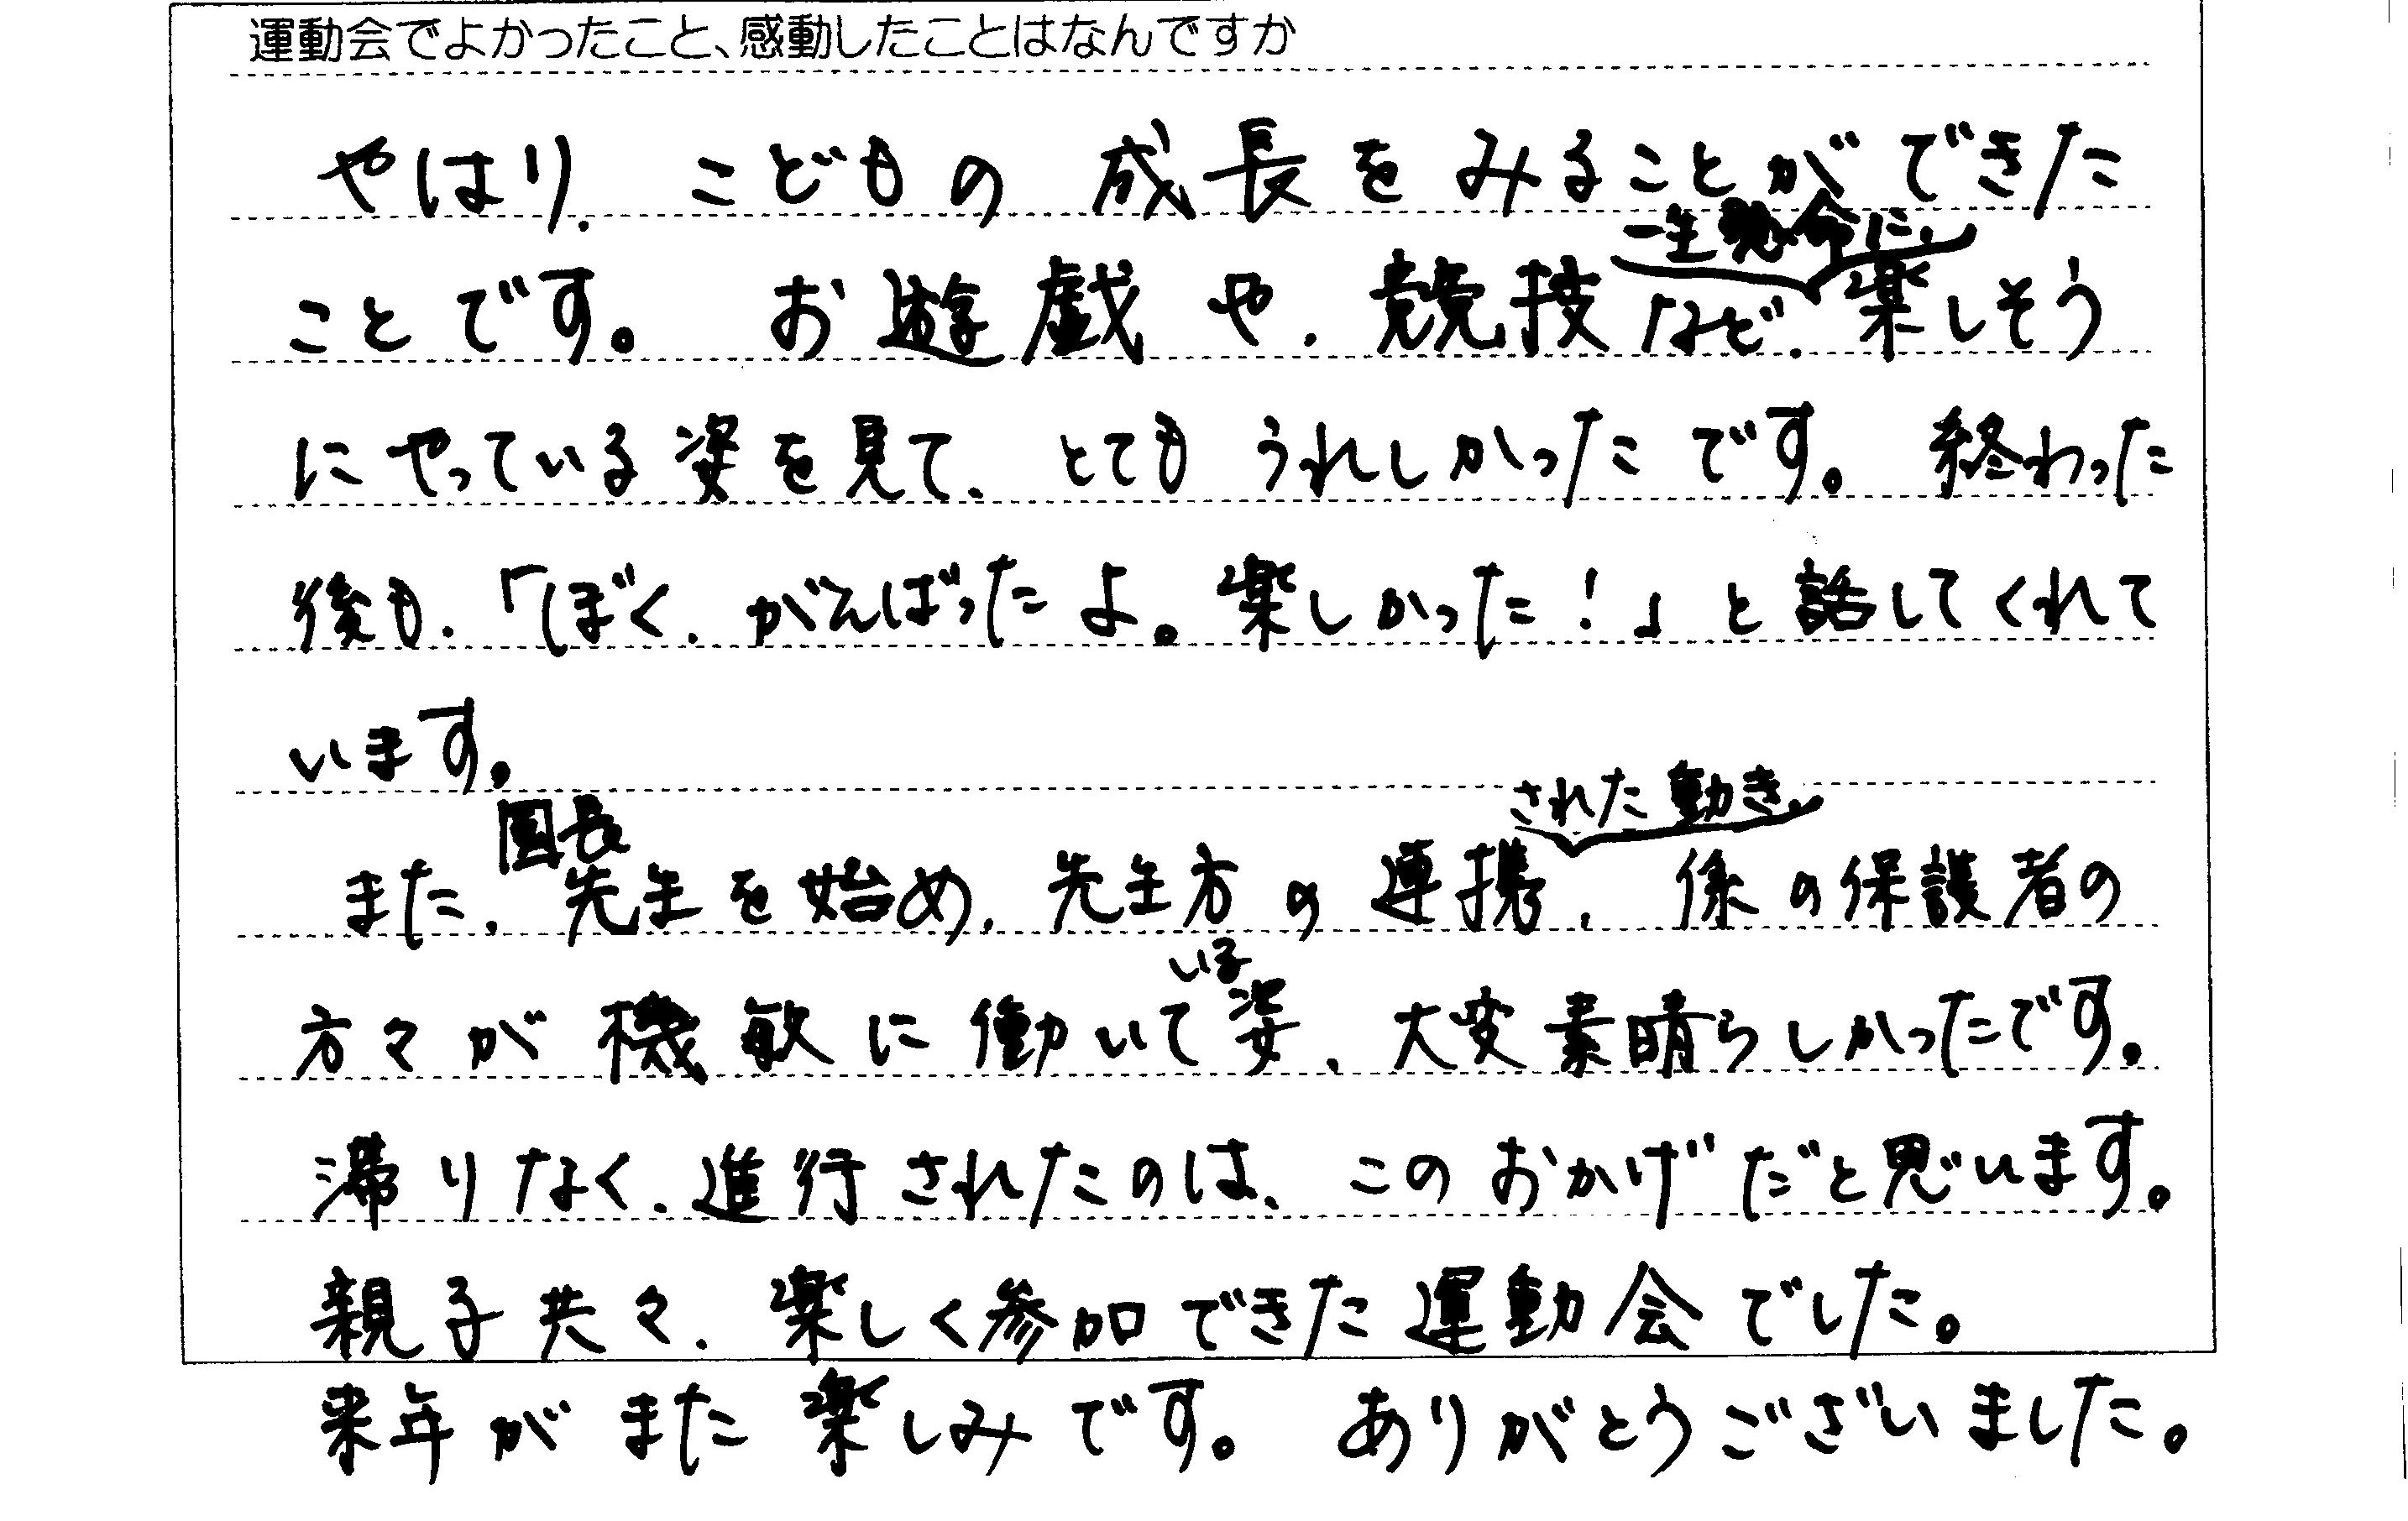 運動会でよかったこと、感動したことはなんですか
やはり、こどもの成長をみることができた
一生懸命に、
ことです。お遊戯や、競技など、楽しそう
にやっている姿を見て、とてもうれしかったです。終わった
後も、「ぼく、がんばったよ。楽しかった!」と話してくれて
います。
園長
された動き、
また、先生を始め、先生方の連携、係の保護者の
いる
方々が機敏に働いて姿、大変素晴らしかったです。
滞りなく、進行されたのは、このおかげだと思います。
親子共々、楽しく参加できた運動会でした。
来年がまた楽しみです。ありがとうございました。